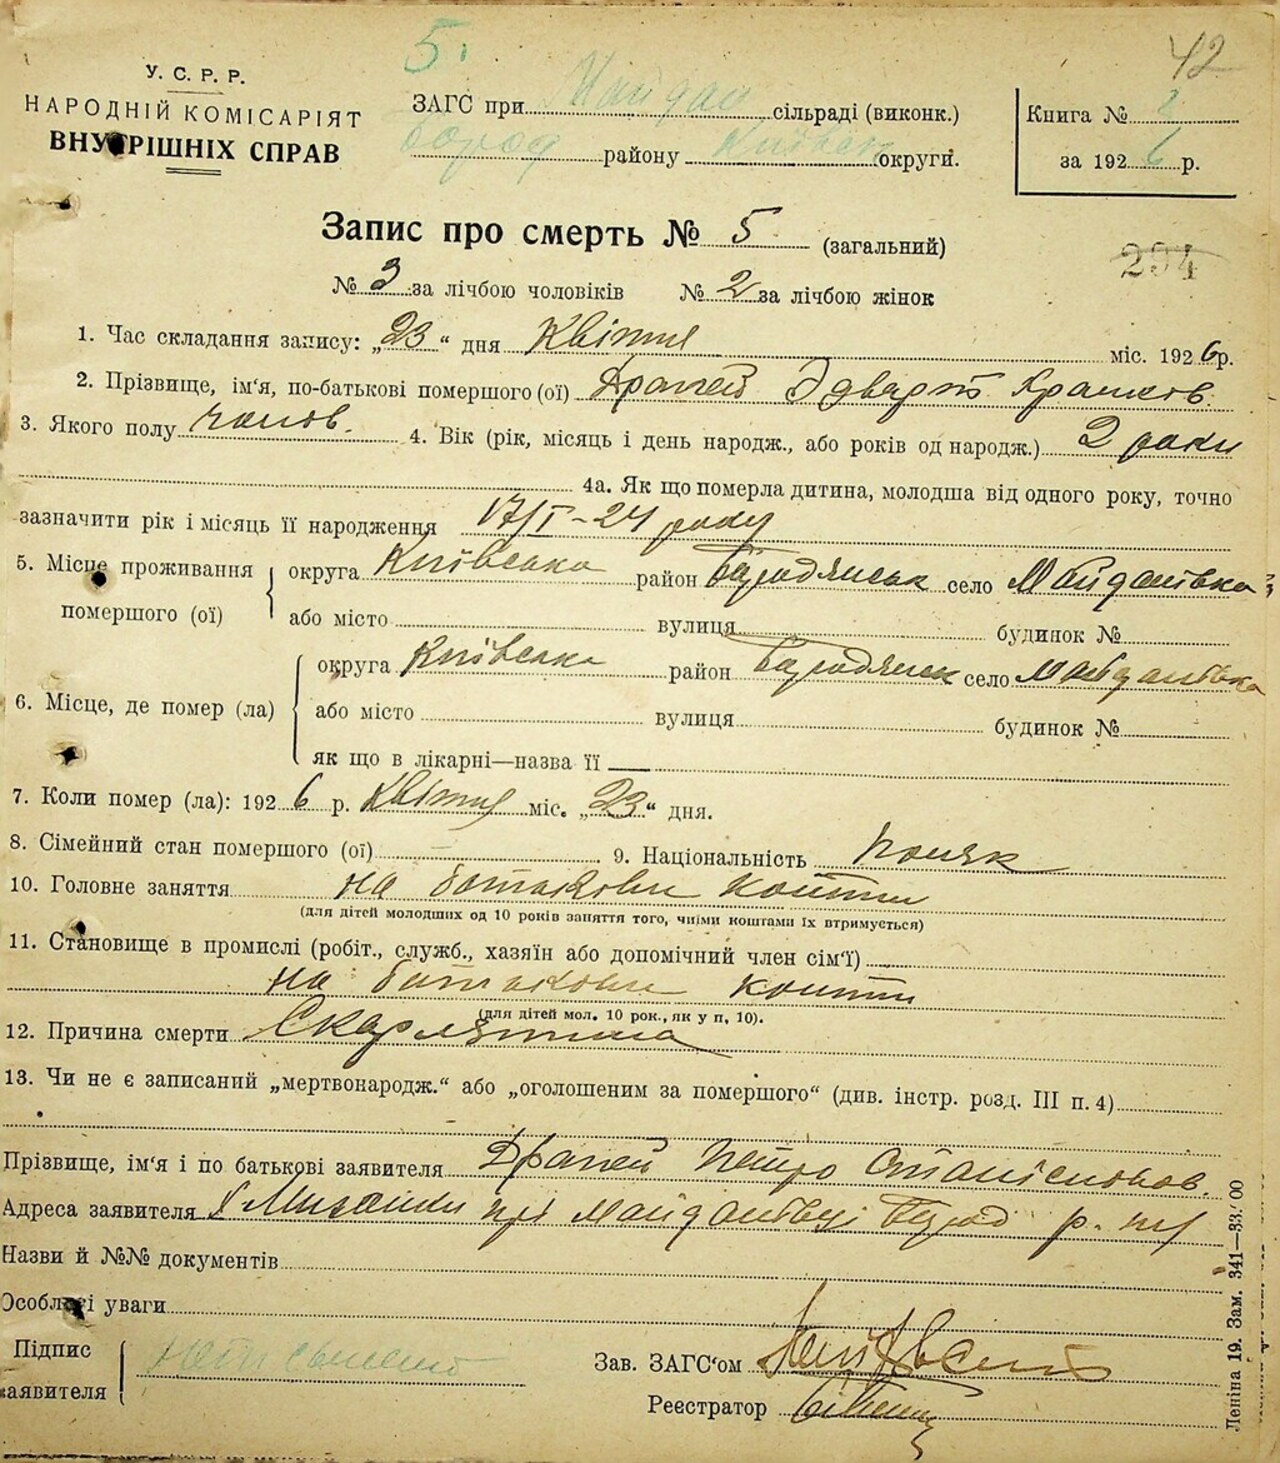 5.
42
У. С. Р. Р.
НАРОДНІЙ КОМІСАРІЯТ
ВНУТРІШНІХ СПРАВ
ЗАГС при Майдан сільраді (виконк.)
Бород району Київськ округи.
Книга № 2
за 1926 р.
Запис про смерть № 5 (загальний)
294
№ 3 за лічбою чоловіків № 2 за лічбою жінок
1. Час складання запису: „23“ дня Квітня міс. 1926 р.
2. Прізвище, ім'я, по-батькові помершого (ої) Драпей Эдвартъ Франков.
3. Якого полу чолов. 4. Вік (рік, місяць і день народж., або років од народж.) 2 роки
4а. Як що померла дитина, молодша від одного року, точно
зазначити рік і місяць її народження 17/I - 24 року
5. Місце проживання помершого (ої) округа Київська район Бородянськ село Майданівка
або місто вулиця будинок №
6. Місце, де помер (ла) округа Київська район Бородянськ село Майданівка
або місто вулиця будинок №
як що в лікарні—назва її —
7. Коли помер (ла): 1926 р. Квітня міс. „23“ дня.
8. Сімейний стан помершого (ої) 9. Національність Поляк
10. Головне заняття на батькови кошти
(для дітей молодших од 10 років заняття того, чиїми коштами їх втримується)
11. Становище в промислі (робіт., служб., хазяїн або допомічний член сім'ї)
на батькови кошти
(для дітей мол. 10 рок., як у п. 10).
12. Причина смерти Скарлятина
13. Чи не є записаний „мертвонародж.“ або „оголошеним за помершого“ (див. інстр. розд. III п. 4)
Прізвище, ім'я і по батькові заявителя Драпей Петро Станіславов.
Адреса заявителя при Майданівці Бород р.
Назви й №№ документів
Особливі уваги
Підпис заявителя
Зав. ЗАГС'ом
Реєстратор
Леніна 19. Зам. 341—33.000